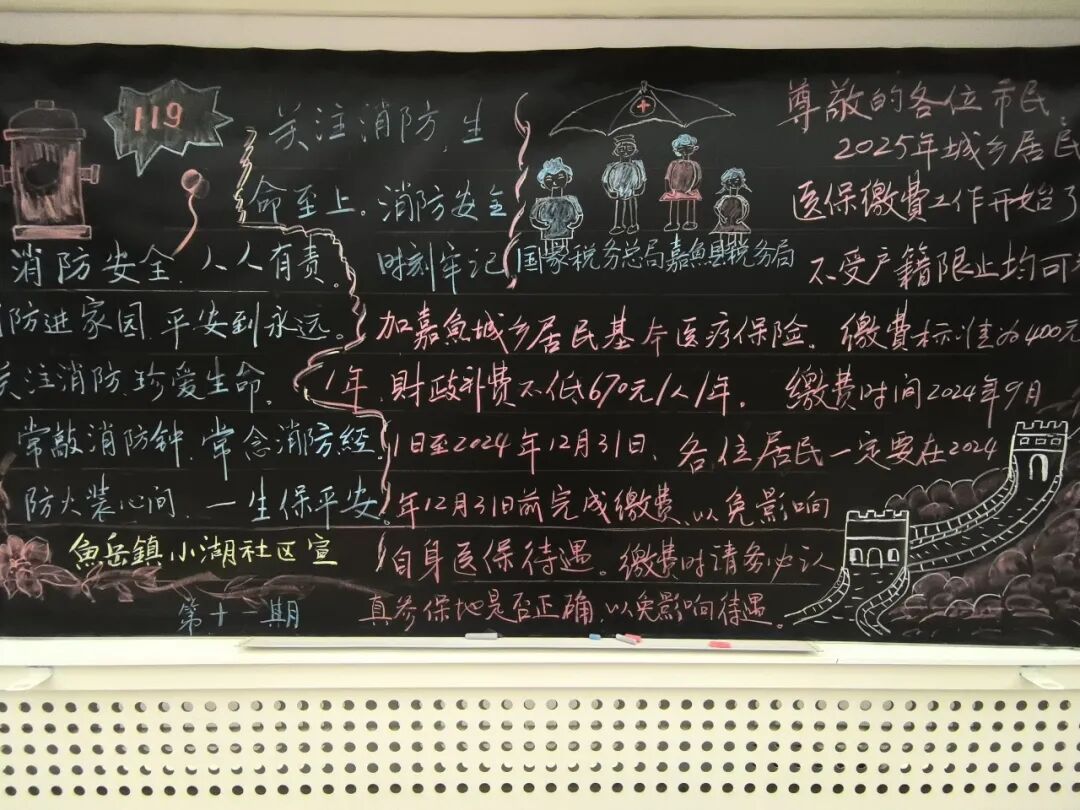 119
关注消防,生
命至上。消防安全
时刻牢记
消防安全、人人有责。
防进家园,平安到永远。
关注消防,珍爱生命。
常敲消防钟,常念消防经。
防火装心间,一生保平安。
魚岳鎮小湖社区宣
第十一期
国家税务总局嘉魚县税务局
尊敬的各位市民:
2025年城乡居民
医保缴费工作开始了
不受户籍限止均可
加嘉魚城乡居民基本医疗保险。缴费标准为400元
/年,财政补费不低670元/人/年。缴费时间2024年9月
1日至2024年12月31日、各位居民一定要在2024
年12月31日前完成缴费,以免影响
自身医保待遇。缴费时请务必认
真参保地是否正确,以免影响待遇。